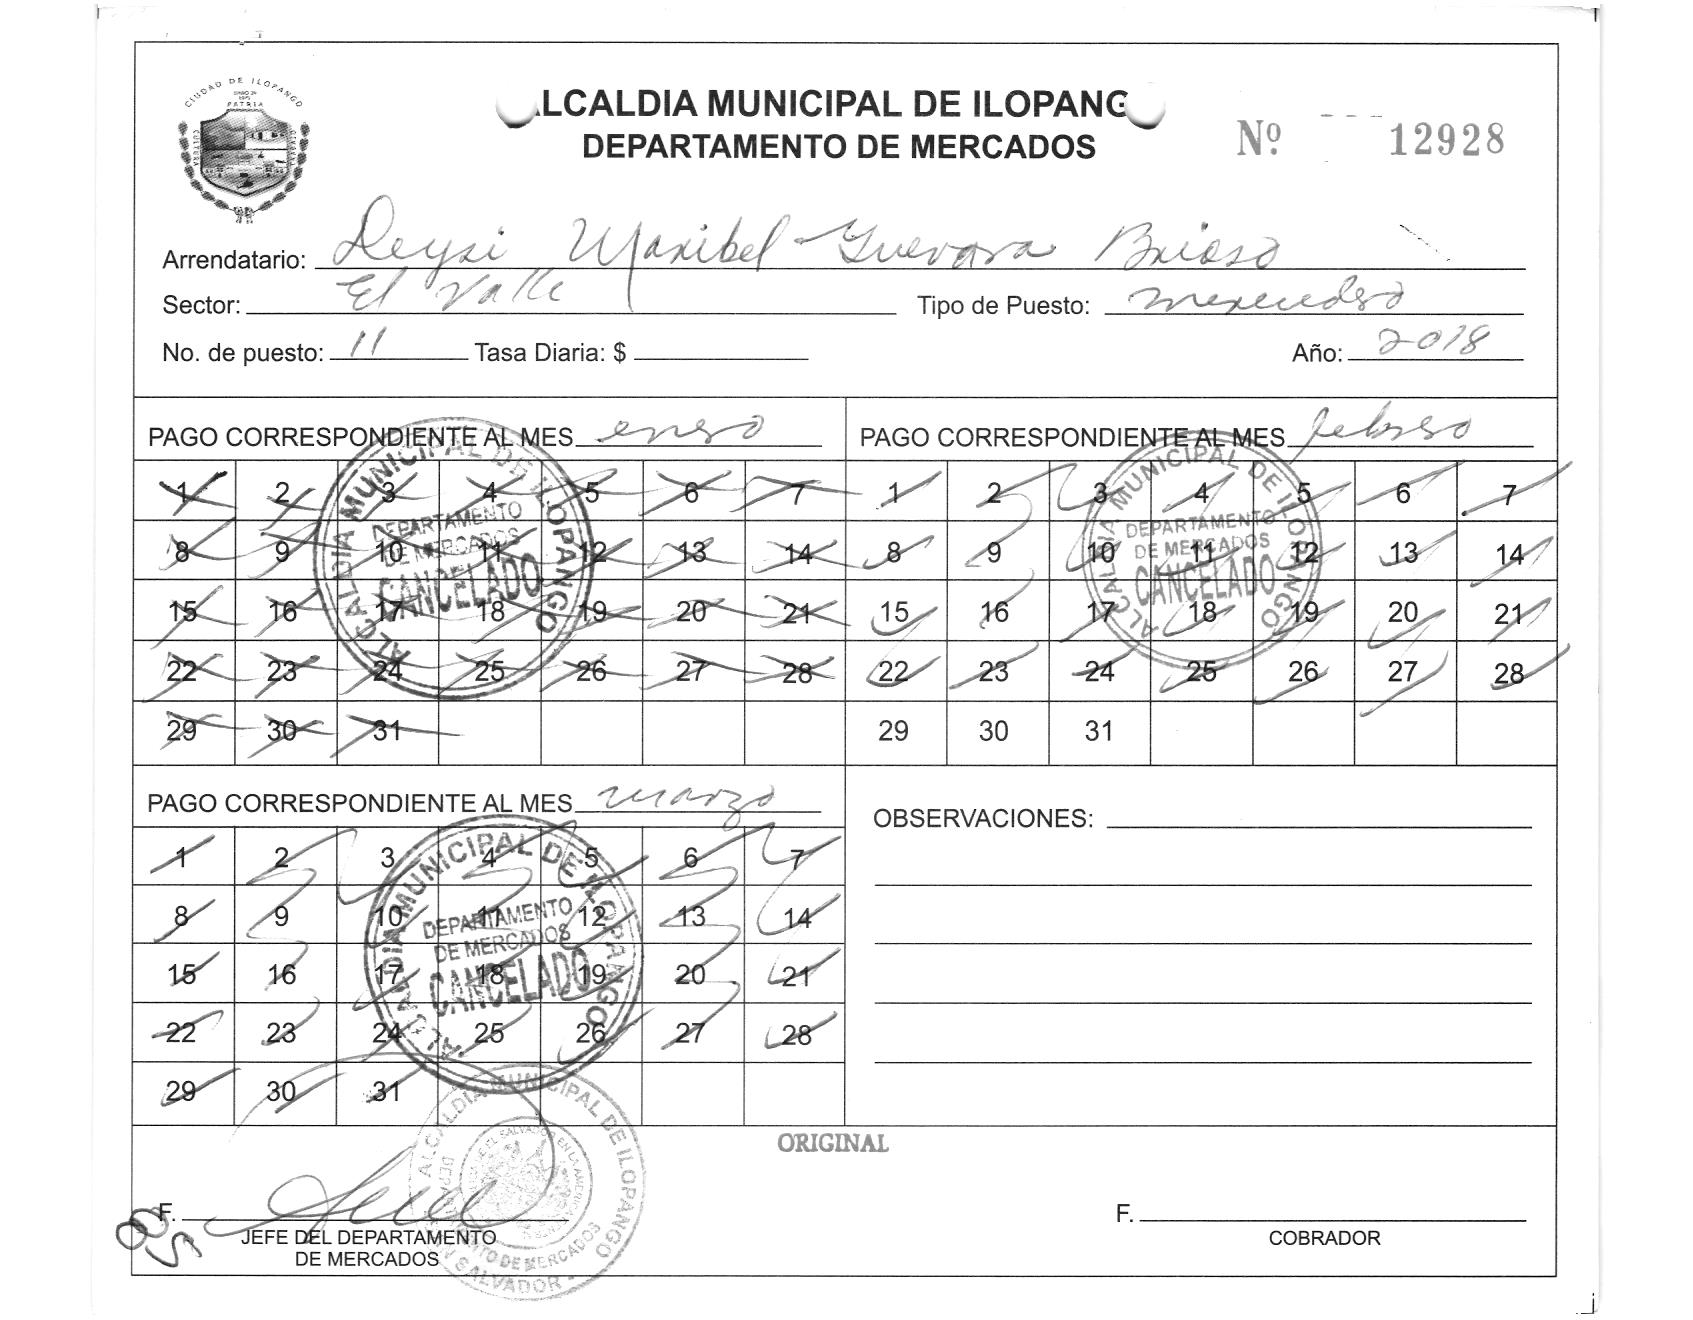 CIUDAD DE ILOPANGO
PATRIA
CULTURA
LCALDIA MUNICIPAL DE ILOPANG
DEPARTAMENTO DE MERCADOS
Nº 12928
Arrendatario: Deysi Maribel Guevara Brioso
Sector: El Valle Tipo de Puesto:
No. de puesto: 11 Tasa Diaria: $ Año: 2018
PAGO CORRESPONDIENTE AL MES enero
1 2 3 4 5 6 7
8 9 10 11 12 13 14
15 16 17 18 19 20 21
22 23 24 25 26 27 28
29 30 31
ALCALDIA MUNICIPAL DE ILOPANGO
DEPARTAMENTO
DE MERCADOS
CANCELADO
PAGO CORRESPONDIENTE AL MES febrero
1 2 3 4 5 6 7
8 9 10 11 12 13 14
15 16 17 18 19 20 21
22 23 24 25 26 27 28
29 30 31
ALCALDIA MUNICIPAL DE ILOPANGO
DEPARTAMENTO
DE MERCADOS
CANCELADO
PAGO CORRESPONDIENTE AL MES marzo
1 2 3 4 5 6 7
8 9 10 11 12 13 14
15 16 17 18 19 20 21
22 23 24 25 26 27 28
29 30 31
ALCALDIA MUNICIPAL DE ILOPANGO
DEPARTAMENTO
DE MERCADOS
CANCELADO
OBSERVACIONES:
ORIGINAL
F.
JEFE DEL DEPARTAMENTO
DE MERCADOS
ALCALDIA MUNICIPAL DE ILOPANGO
SALVADOR
F.
COBRADOR